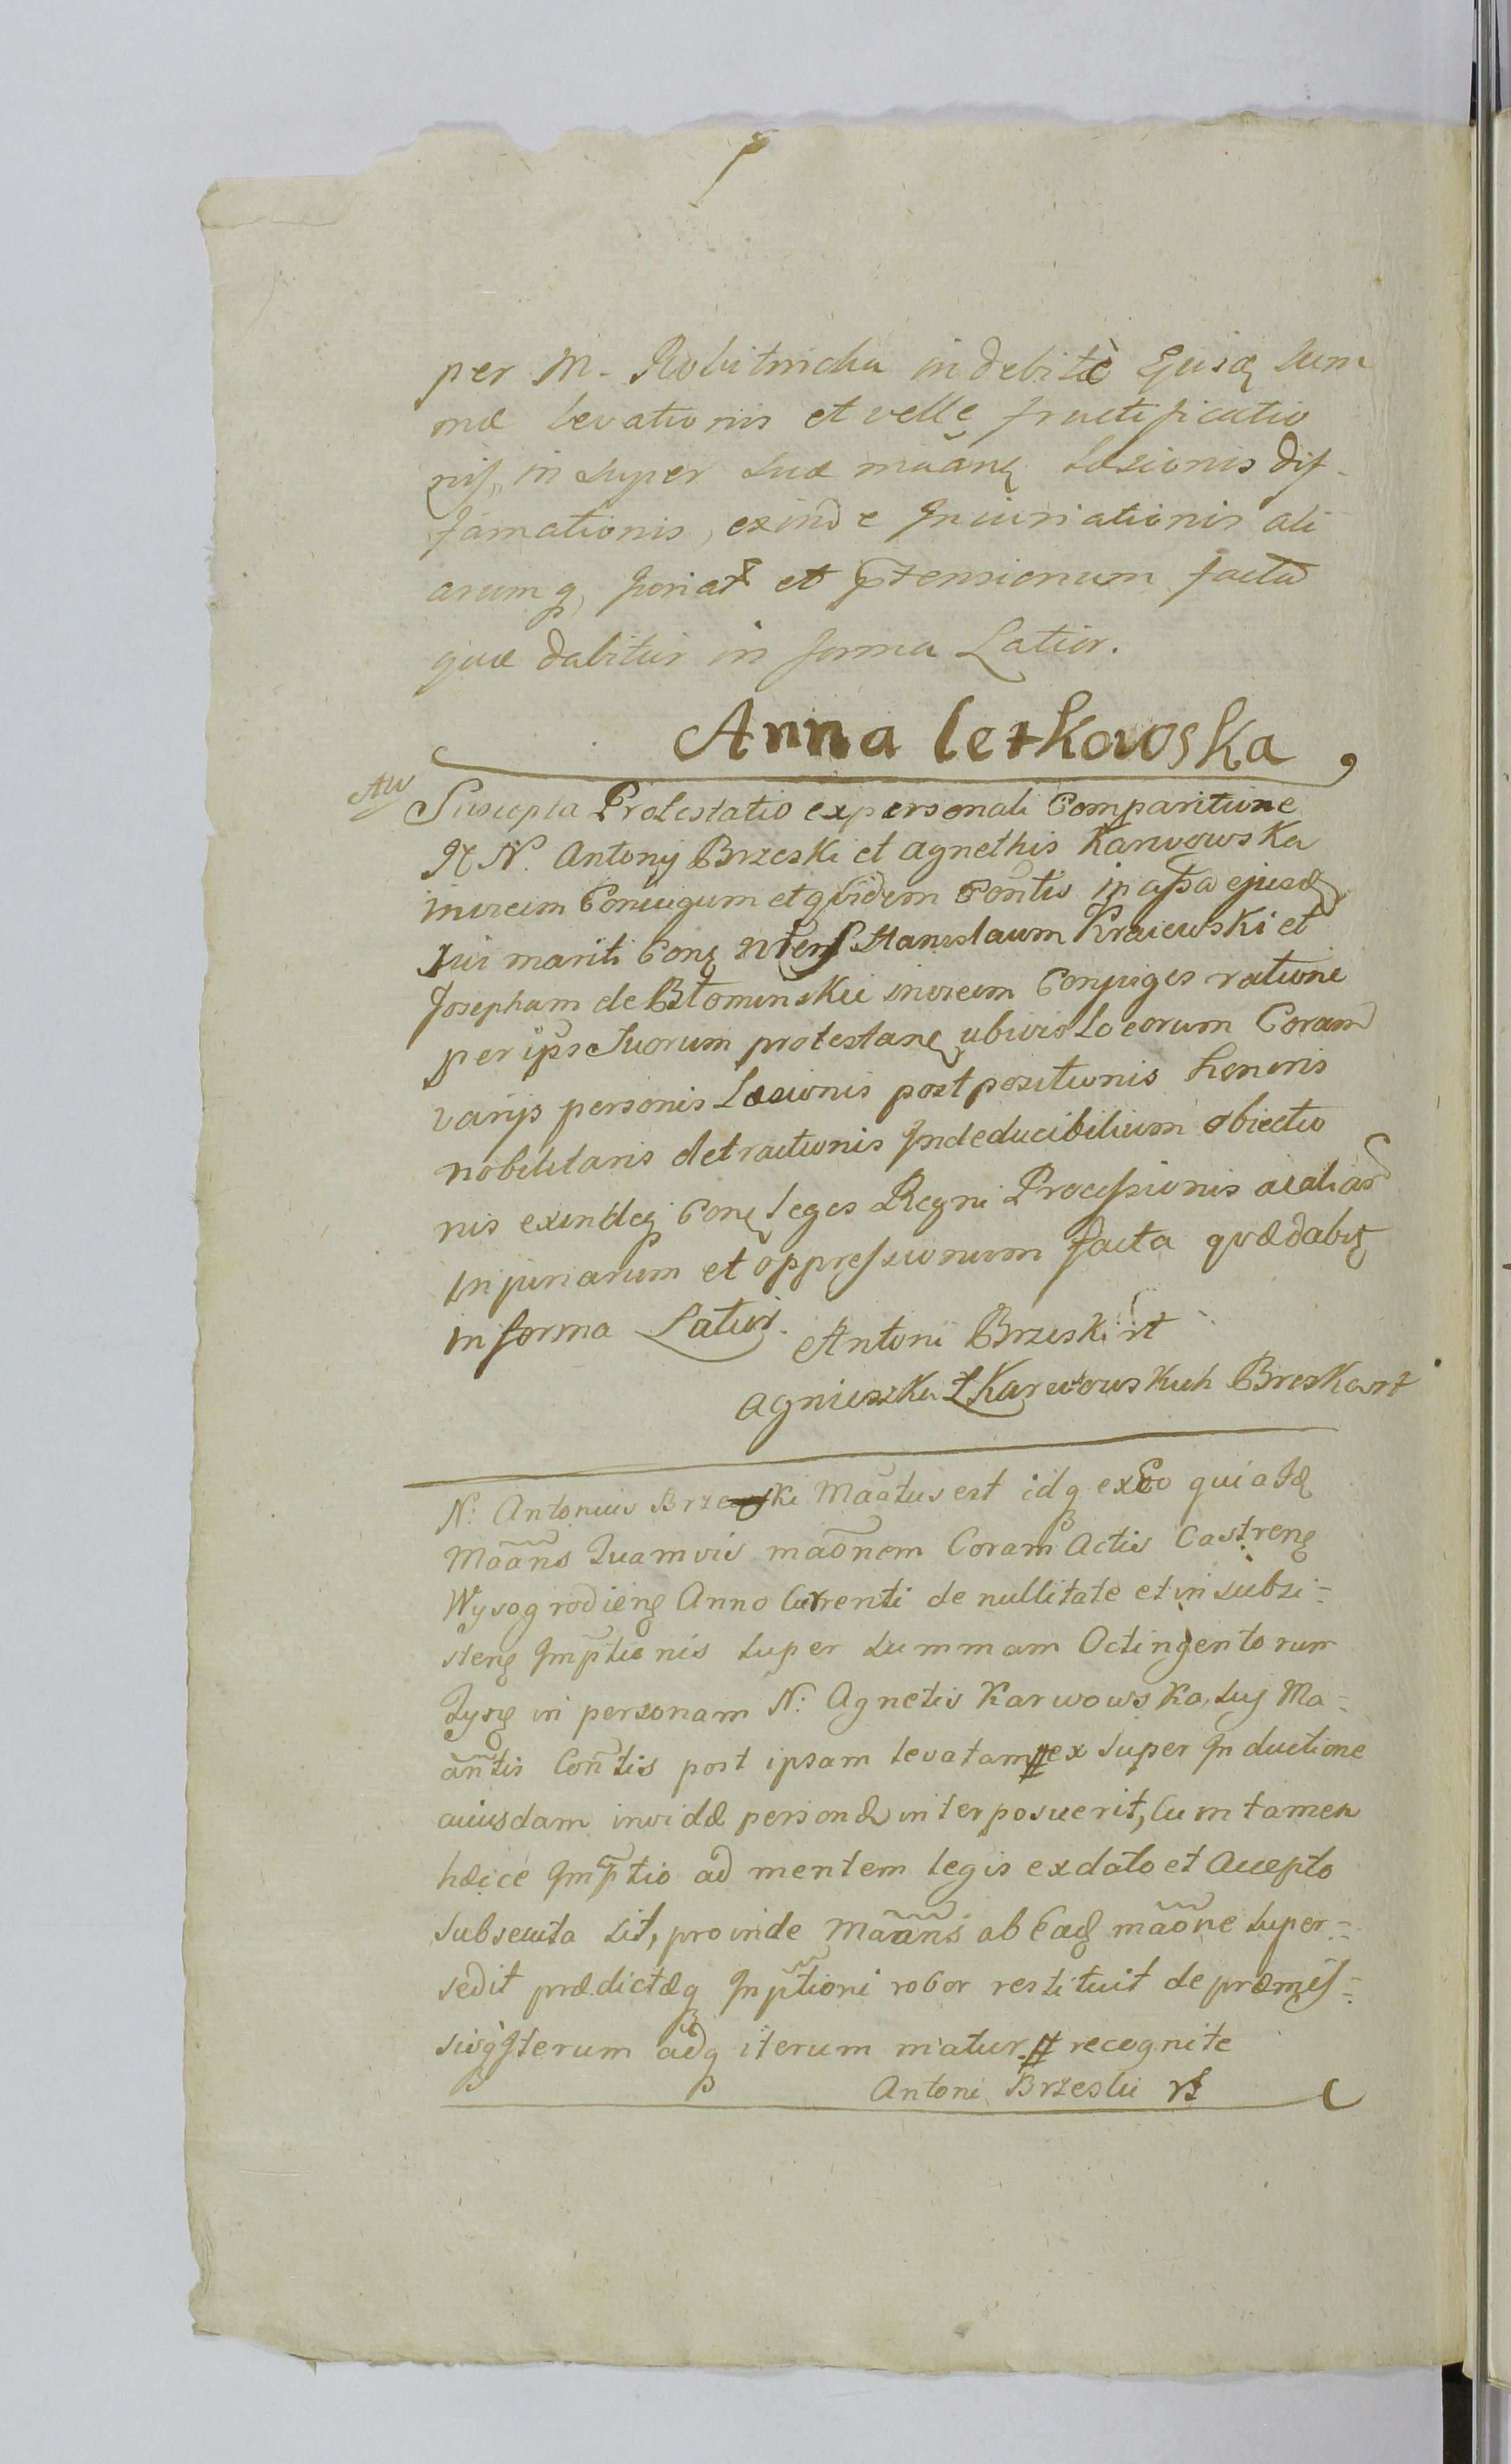 per M. Robitnicka indebitè Ejusq Sum
mæ levationis et velle fructificatio
nis, in super suæ mãanq Læsionis dif-
famationis, exinde Injuriationis ali
arumq, Injuriat et prtensionum facta
quæ dabitur in forma Latior.
Anna letkowska
AW
Suscepta Protestatio ex personali Comparitione
N N. Antony Brzeski et Agnethis Karwowska
invicem Coniugum et qvidem Contis in assa ejusd
sui mariti Conq Stanislaum Kraiewski et
Josepham de Błominskie invicem Conjuges ratione
per ipsos Suorum protestanq ubivis Locorum Coram
varijs personis Læsionis postpositionis honoris
nobilitaris detractionis Indeducibilium obiectio
nis exindeq Conq Leges Regni Processionis aaliar
Injuriarum et oppressionum facta qvæ dabit
in forma Latiori.
Antoni Brzeski rt
Agnieszka z Karwowskich Breska rt
N: Antonius Brzeski Maatus est idq ex Eo quia Id
Maans Quamvis maonem Coram Actis Castrenq
Wysogrodienq Anno Currenti de nullitate et in subsi-
stenq Imptionis super summam Octingentorum
Tysq in personam N: Agnetis Karwowska, suj Ma-
antis Contis post ipsam levatam # ex super Inductione
cuiusdam invidæ personæ interposuerit, Cum tamen
hæcce Imptio ad mentem legis ex dato et Accepto
subsecuta sit, proinde Maans ab Eadq maone super-
sedit prædictæq Inptioni robor restituit de præmis-
sisq Iterum adq iterum matur # recognite
Antoni Brzeski rt